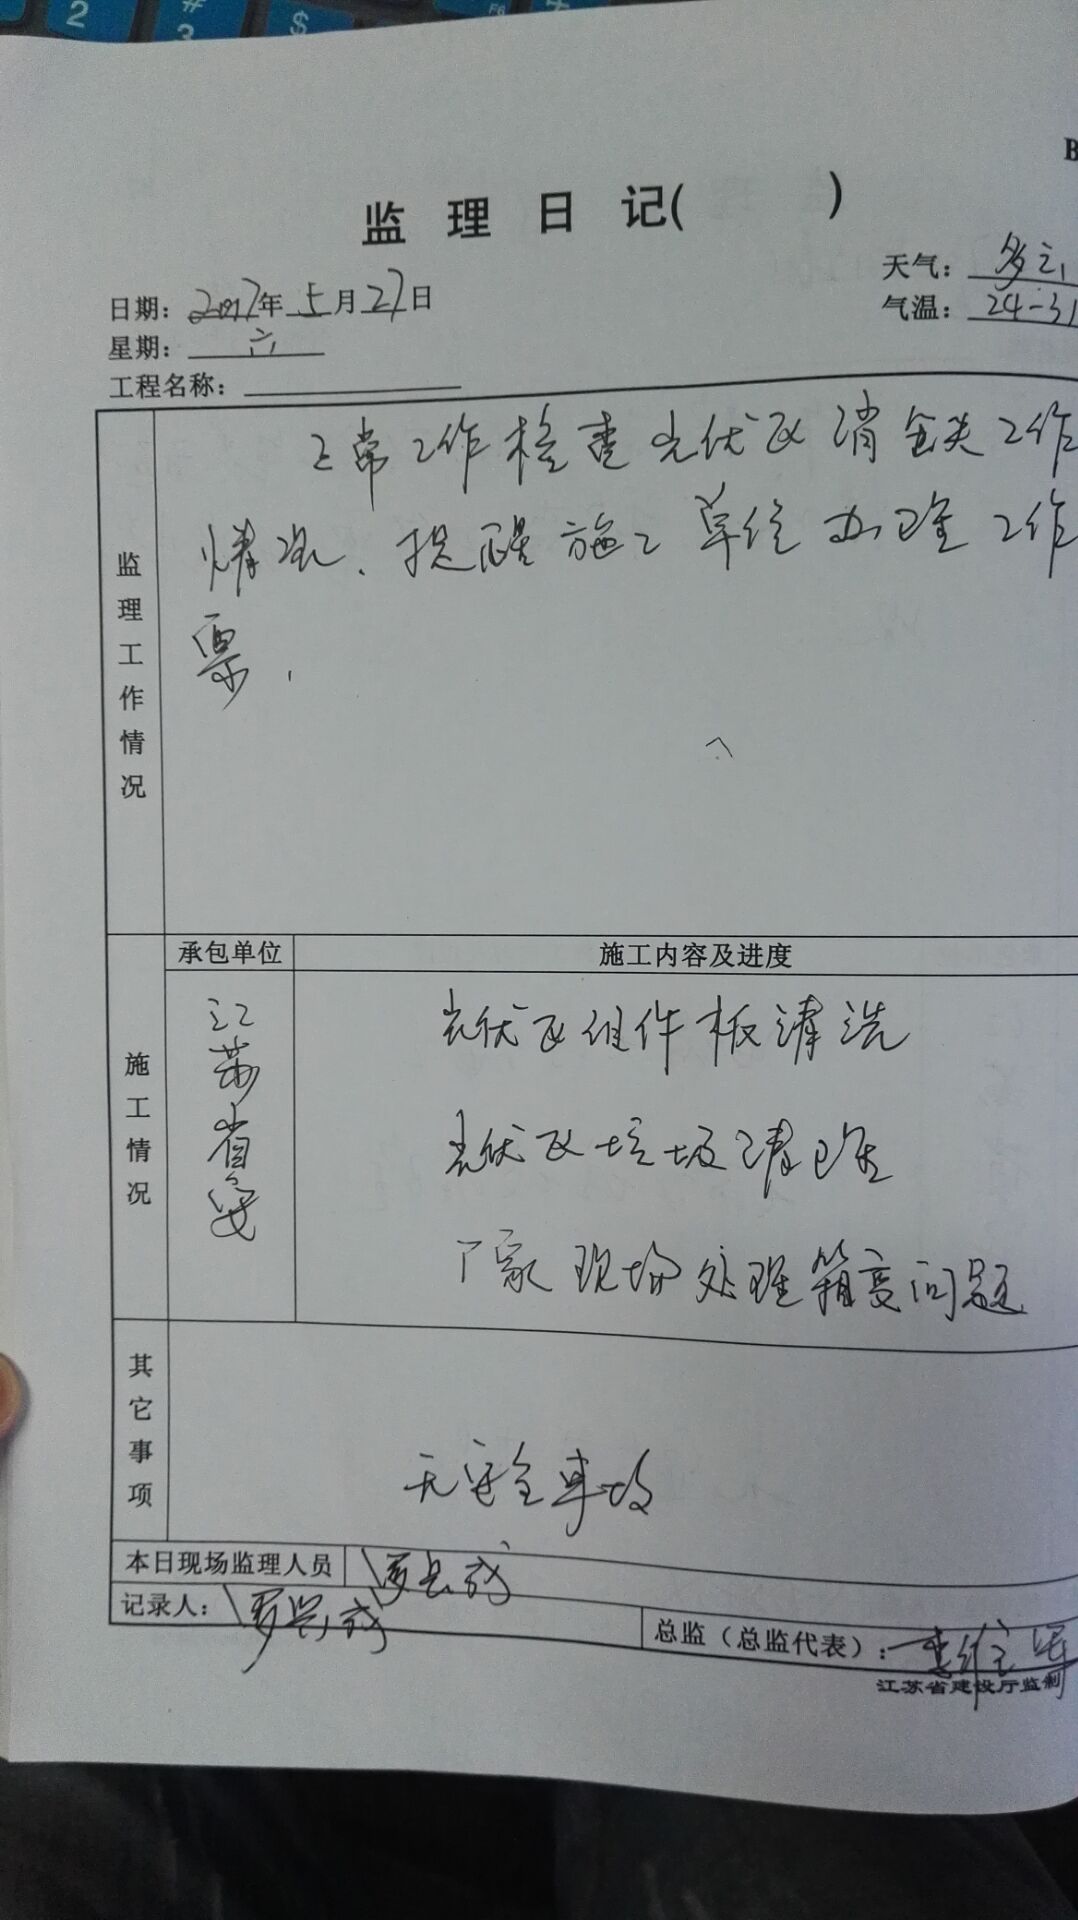 B
监理日记( )
日期：2017年5月27日
天气：多云
星期：六
气温：24-31
工程名称：
监理工作情况
正常工作检查光伏区消缺工作
情况、提醒施工单位办理工作
票、
承包单位
施工内容及进度
施工情况
江苏省安
光伏区组件板清洗
光伏区垃圾清理
厂家现场处理箱变问题
其它事项
无安全事故
本日现场监理人员
记录人：
总监（总监代表）：
江苏省建设厅监制